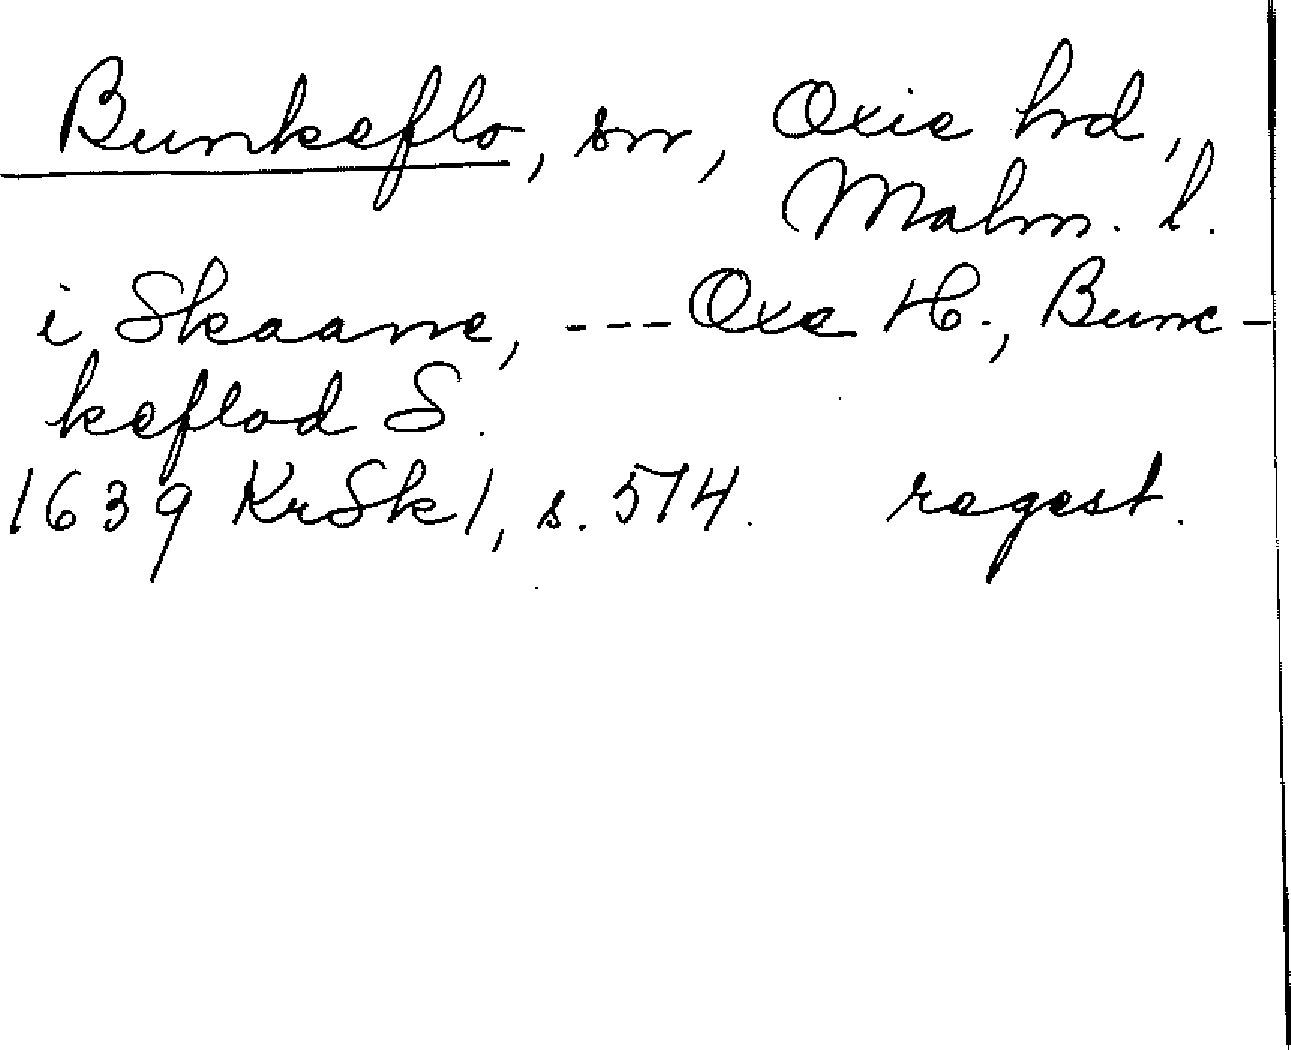 Bunkeflo, sn, Oxie hd,
Malm. l.
i Skaane, --- Oxe H., Bunc-
keflod S.
1639 KrSk1, s. 574. regest.